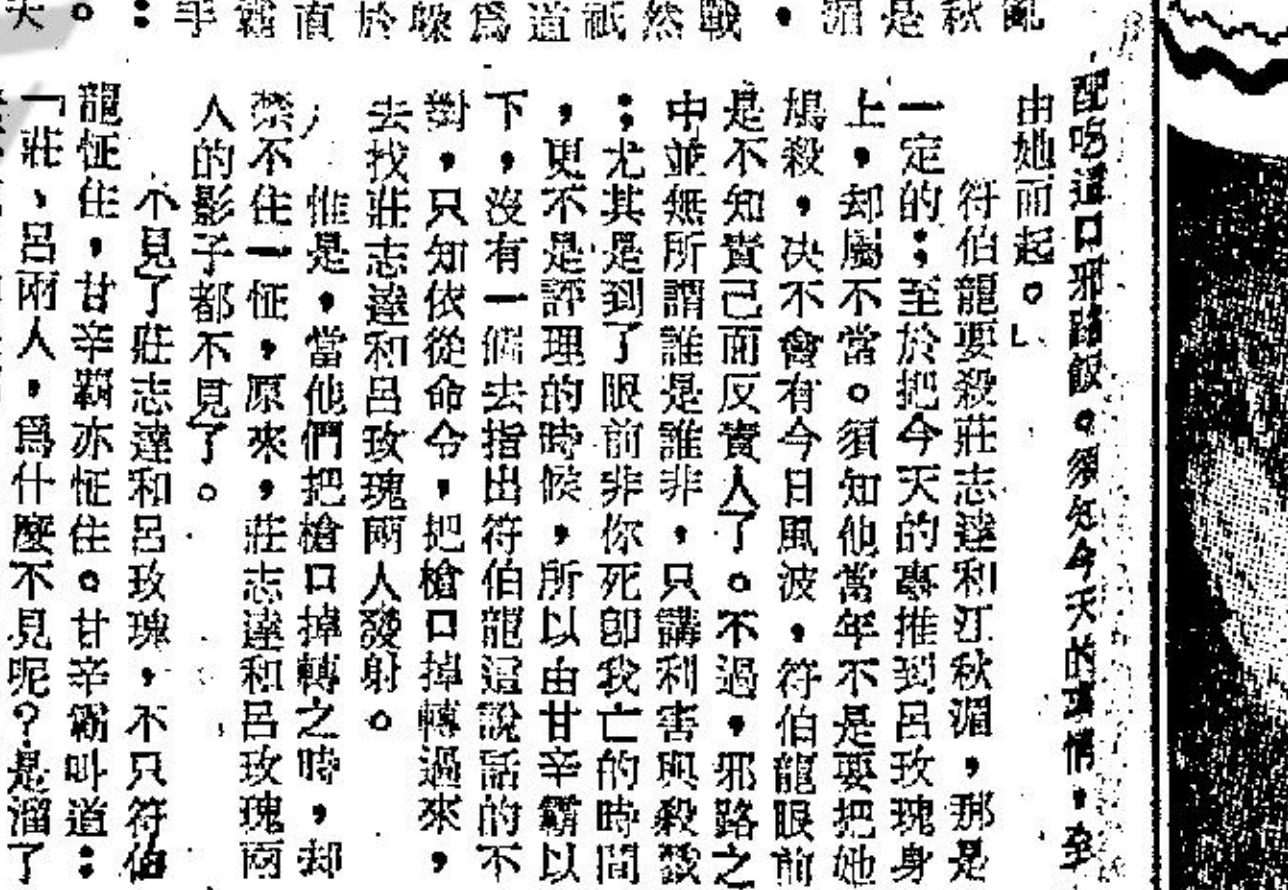 配吃這口邪路飯。須知今天的事情,全
由她而起。」
符伯龍要殺莊志達和江秋湄,那是
一定的;至於把今天的事推到呂玫瑰身
上,却屬不當。須知他當年不是要把她
鴆殺,決不會有今日風波,符伯龍眼前
是不知責己而反責人了。不過,邪路之
中並無所謂誰是誰非,只講利害與殺戮
;尤其是到了眼前非你死即我亡的時間
,更不是評理的時候,所以由甘辛霸以
下,沒有一個去指出符伯龍這說話的不
對,只知依從命令,把槍口掉轉過來,
去找莊志達和呂玫瑰兩人發射。
惟是,當他們把槍口掉轉之時,却
禁不住一怔,原來,莊志達和呂玫瑰兩
人的影子都不見了。
不見了莊志達和呂玫瑰,不只符伯
龍怔住,甘辛霸亦怔住。甘辛霸叫道:
「莊、呂兩人,爲什麼不見呢?是溜了